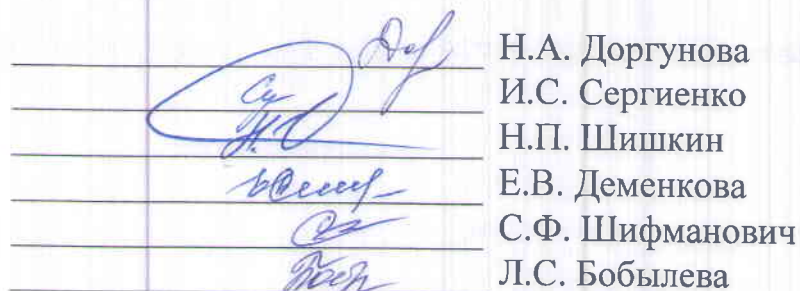 Н.А. Доргунова
И.С. Сергиенко
Н.П. Шишкин
Е.В. Деменкова
С.Ф. Шифманович
Л.С. Бобылева